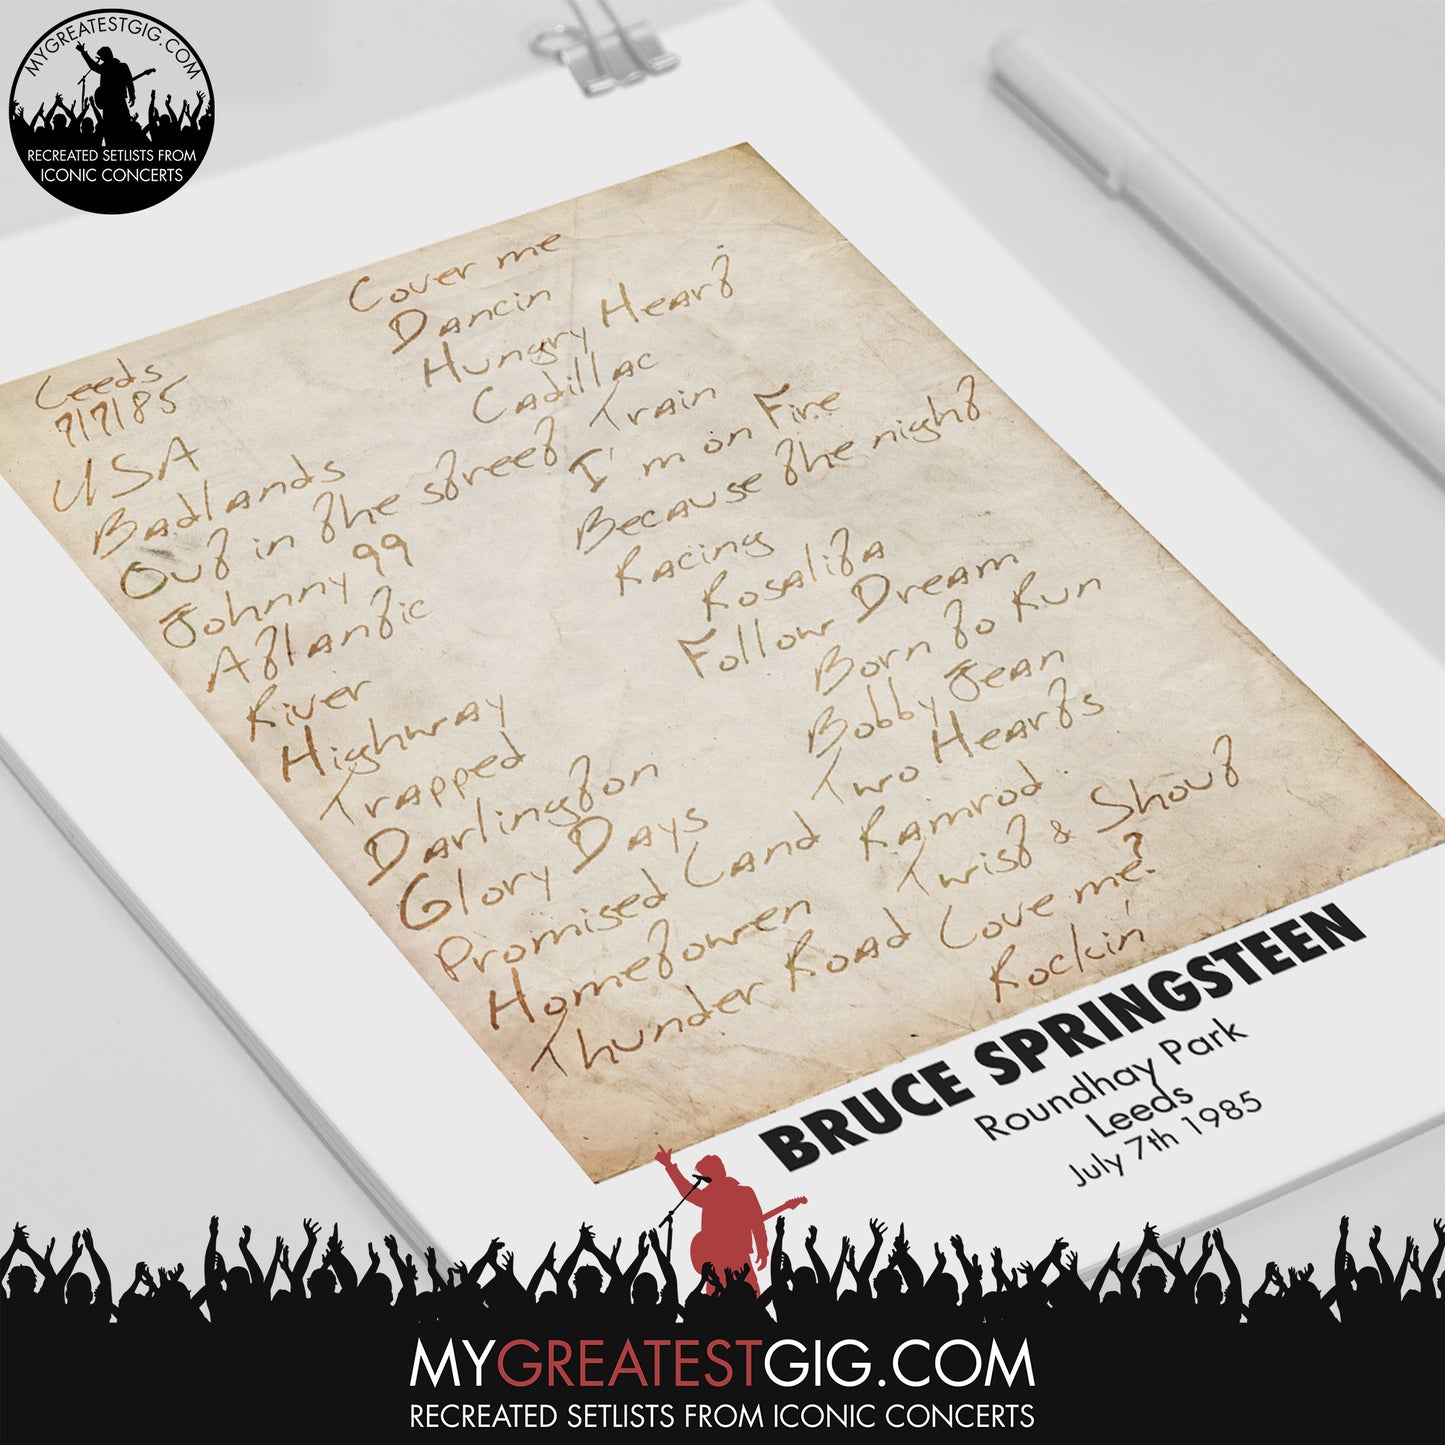 MYGREATESTGIG.COM
RECREATED SETLISTS FROM
ICONIC CONCERTS
Leeds
7/7/85
USA
Badlands
Out in the street
Johnny 99
Atlantic
River
Highway
Trapped
Darlington
Glory Days
Promised Land
Hometowen
Thunder Road
Cover me
Dancin
Hungry Heart
Cadillac
Train
I'm on Fire
Because the night
Racing
Rosalita
Follow Dream
Born to Run
Bobby Jean
Two Hearts
Ramrod
Twist & Shout
Love me?
Rockin'
BRUCE SPRINGSTEEN
Roundhay Park
Leeds
July 7th 1985
MYGREATESTGIG.COM
RECREATED SETLISTS FROM ICONIC CONCERTS